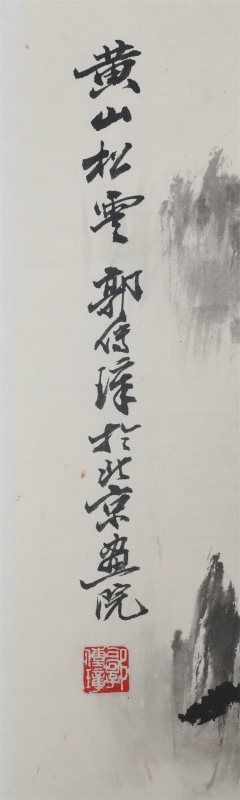 黄山松雲 郭传璋於北京画院
郭傳璋